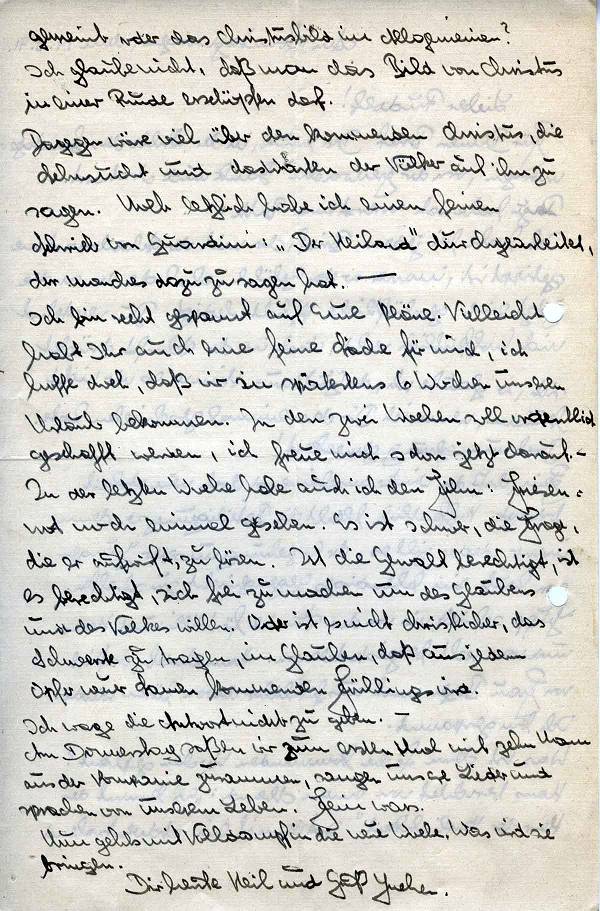 gemeint oder das Christusbild im Allgemeinen?
Ich glaube nicht, daß man das Bild von Christus
in einer Runde erschöpfen darf.
Dagegen wäre viel über den kommenden Christus, die
Sehnsucht und das Warten der Völker auf ihn zu
sagen. Noch letzlich habe ich einen feinen
Schrieb von Guardini: „Der Heiland" durchgearbeitet,
der manches dazu zu sagen hat. —
Ich bin recht gespannt auf Eure Pläne. Vielleicht
habt Ihr auch eine feine Sache für mich, ich
hoffe doch, daß wir in spätestens 6 Wochen unseren
Urlaub bekommen. In den zwei Wochen soll ordentlich
geschafft werden, ich freue mich schon jetzt darauf. –
In der letzten Woche habe auch ich den Film: Friesen-
not noch einmal gesehen. Es ist schwer, die Frage,
die er aufwirft, zu lösen. Ist die Gewalt berechtigt, ist
es berechtigt, sich frei zu machen um des Glaubens
und des Volkes willen. Oder ist es nicht christlicher, das
Schwerste zu tragen, im Glauben, daß aus jedem
Opfer neuer Samen kommenden Frühlings wird.
Ich wage die Antwort nicht zu geben. –
Am Donnerstag saßen wir zum ersten Mal mit zehn Mann
aus der Kompanie zusammen, sangen unsere Lieder und
sprachen von unserem Leben. Fein wars.
Nun gehts mit Volldampf in die neue Woche. Was wird sie
bringen.
Dir heute Heil und Gruß